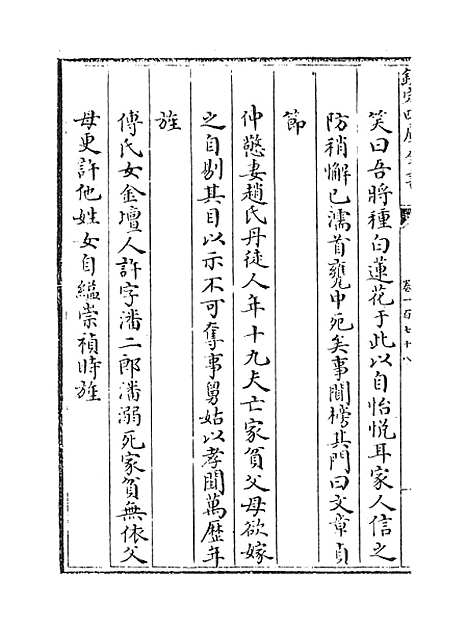 欽定四庫全書
卷一百七十八
笑曰吾將種白蓮花于此以自怡悅耳家人信之
防稍懈已濡首甕中死矣事聞榜其門曰文章貞
節
仲慜妻趙氏丹徒人年十九夫亡家貧父母欲嫁
之自剔其目以示不可奪事舅姑以孝聞萬歷年
旌
傅氏女金壇人許字潘二郎潘溺死家貧無依父
母更許他姓女自縊崇禎時旌